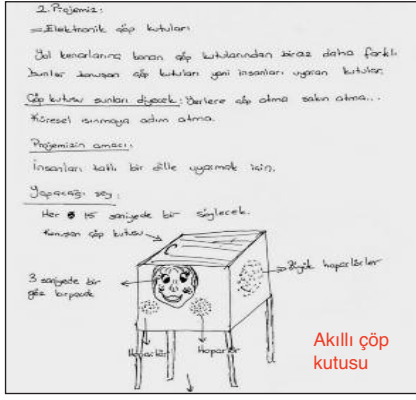 2. Projemiz:
Elektronik çöp kutuları
Yol kenarlarına konan çöp kutularından biraz daha farklı
bunlar konuşan çöp kutuları yani insanları uyaran kutular.
Çöp kutusu şunları diyecek: Yerlere çöp atma sakın atma...
Küresel ısınmaya adım atma.
Projemizin amacı:
İnsanları tatlı bir dille uyarmak için.
Yapacağı şey:
Her 15 saniyede bir söylecek.
Konuşan çöp kutusu
3 saniyede bir
göz kırpacak
Büyük hoparlörler
Hoparlör
Hoparlör
Akıllı çöp
kutusu